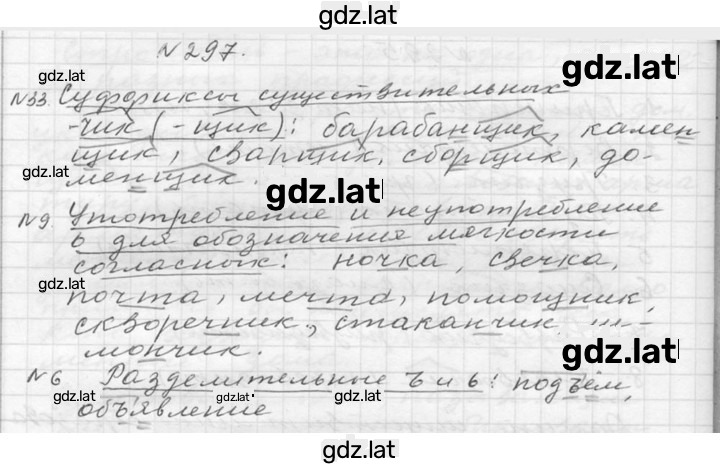 gdz.lat
№297.
gdz.lat
gdz.lat
№33. Суффиксы существительных
-чик (-щик): барабанщик, камен
gdz.lat gdz.lat
щик, сварщик, сборщик, до-
менщик.
gdz.lat
№9. Употребление и неупотребление
ь для обозначения мягкости
согласных: ночка, свечка,
gdz.lat gdz.lat gdz.lat
почта, мечта, помощник,
скворечник, стаканчик,
мончик.
gdz.lat
№6 Разделительные ъ и ь: подъём,
gdz.lat gdz.lat gdz.lat
объявление
gdz.lat